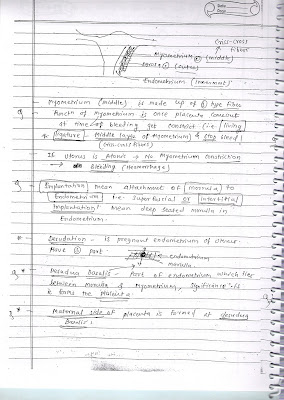 Date
Criss-cross
fibers
Myometrium (middle)
(outer)
Endometrium (innermost)
- Myometrium (middle) is made up of type fibre
- Function of Myometrium is once placenta comeout
at time of bleeding get constrict (i.e. living
ligature - Middle layer of Myometrium) & stop bleed
(criss-cross fibers)
If Uterus is Atonic → No Myometrium constriction
→ Bleeding (Hemorrhage)
Implantation mean attachment of Morula to
Endometrium i.e. superficial or interstitial
implantation mean deep seated morula in
Endometrium.
* - Desudation - is pregnant endometrium of uterus.
Have 3 part.
endometrium
morula.
* Desadua Basalis - Part of endometrium which lies
between morula & Myometrium, significance is
it forms the Placenta.
* Maternal side of placenta is formed of
Basalis.